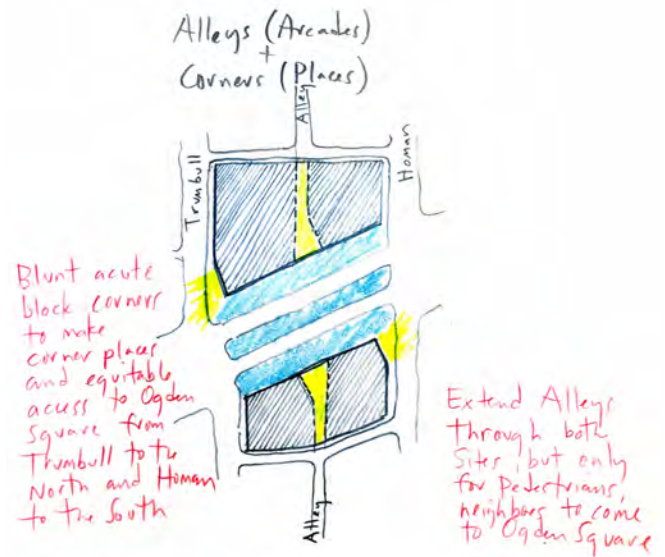 Alleys (Arcades)
+
Corners (Places)
Alley
Trumbull
Homan
Blunt acute
block corners
to make
corner places
and equitable
acess to Ogden
Square from
Trumbull to the
North and Homan
to the South
Extend Alleys
through both
Sites, but only
for Pedestrians,
neighbors to come
to Ogden Square
Alley